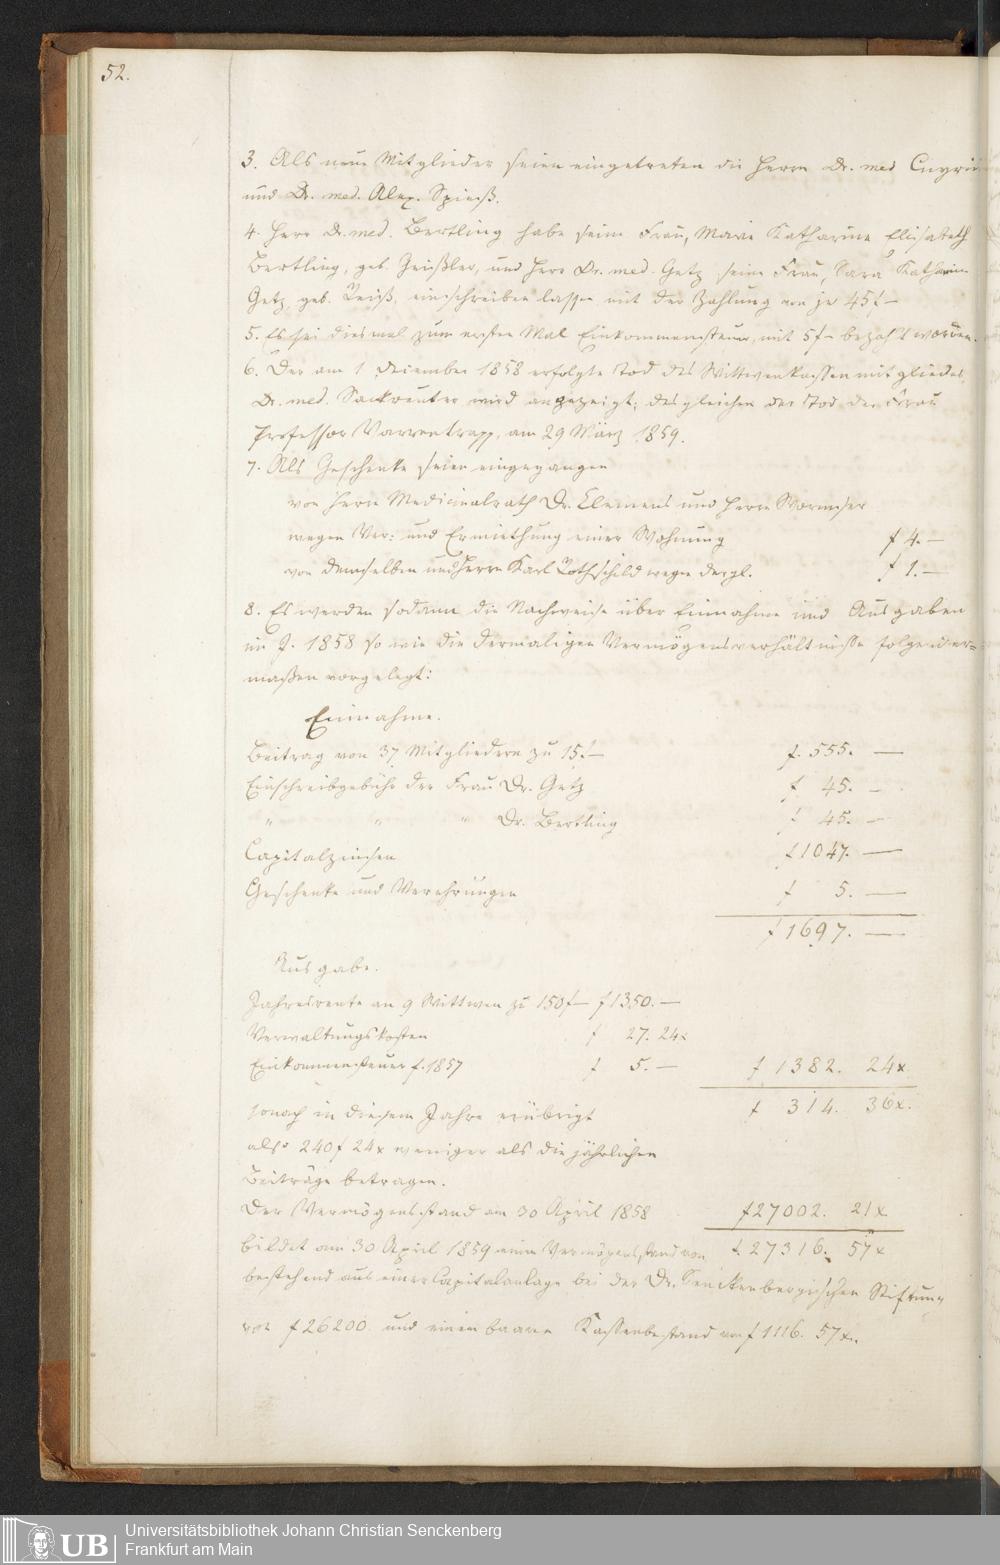 52.
3. Als neue Mitglieder seien eingetreten die Herrn Dr. med Cnyrim
und Dr. med. Alex. Spieß.
4. Herr Dr. med. Bertling habe seine Frau, Marie Katharine Elisabeth
Bertling, geb. und Herr Dr. med. Getz seine Frau, Sara Katharine
Getz, geb. Reiß, einschreiben lassen mit der Zahlung von je 45f –
5. Es sei diesmal zum ersten Mal Einkommensteuer, mit 5f – bezahlt worden.
6. Der am 1 December 1858 erfolgte Tod des Wittwenkassenmitgliedes,
Dr. med. Sackreuter wird angezeigt; desgleichen der Tod der Frau
Professor Varrentrapp, am 29 März 1859.
7. Als Geschenke seien eingegangen
von Herrn Medicinalrath Dr. Clemens und Herrn Wormser
wegen Ver- und Ermiethung einer Wohnung f 4. –
von demselben und Herrn Karl Rothschild wegen dergl. f 1. –
8. Es werden sodann die Nachweise über Einnahme und Ausgaben
im J. 1858 so wie die dermaligen Vermögensverhältnisse folgender=
maßen vorgelegt:
Einnahme.
Beitrag von 37 Mitgliedern zu 15f – f. 555. —
Einschreibgebühr der Frau Dr. Getz f 45. –
" " " Dr. Bertling f 45. –
Capitalzinsen f 1047. —
Geschenke und Verehrungen f 5. —
f 1697. —
Ausgabe.
Jahresrente an 9 Wittwen zu 150f – f 1350. —
Verwaltungskosten f 27. 24x
Einkommensteuer f. 1857 f 5. — f 1382. 24x
sonach in diesem Jahre erübrigt f 314. 36x.
also 240f 24x weniger als die jährlichen
Beiträge betragen.
Der Vermögensstand am 30 April 1858 f 27002. 21x
bildet am 30 April 1859 einen Vermögensstand von f. 27316. 57x
bestehend aus einer Capitalanlage bei der Dr. Senckenbergischen Stiftung
von f 26200 und einem baaren Kassenbestand von f 1116. 57x.
Universitätsbibliothek Johann Christian Senckenberg
UB Frankfurt am Main